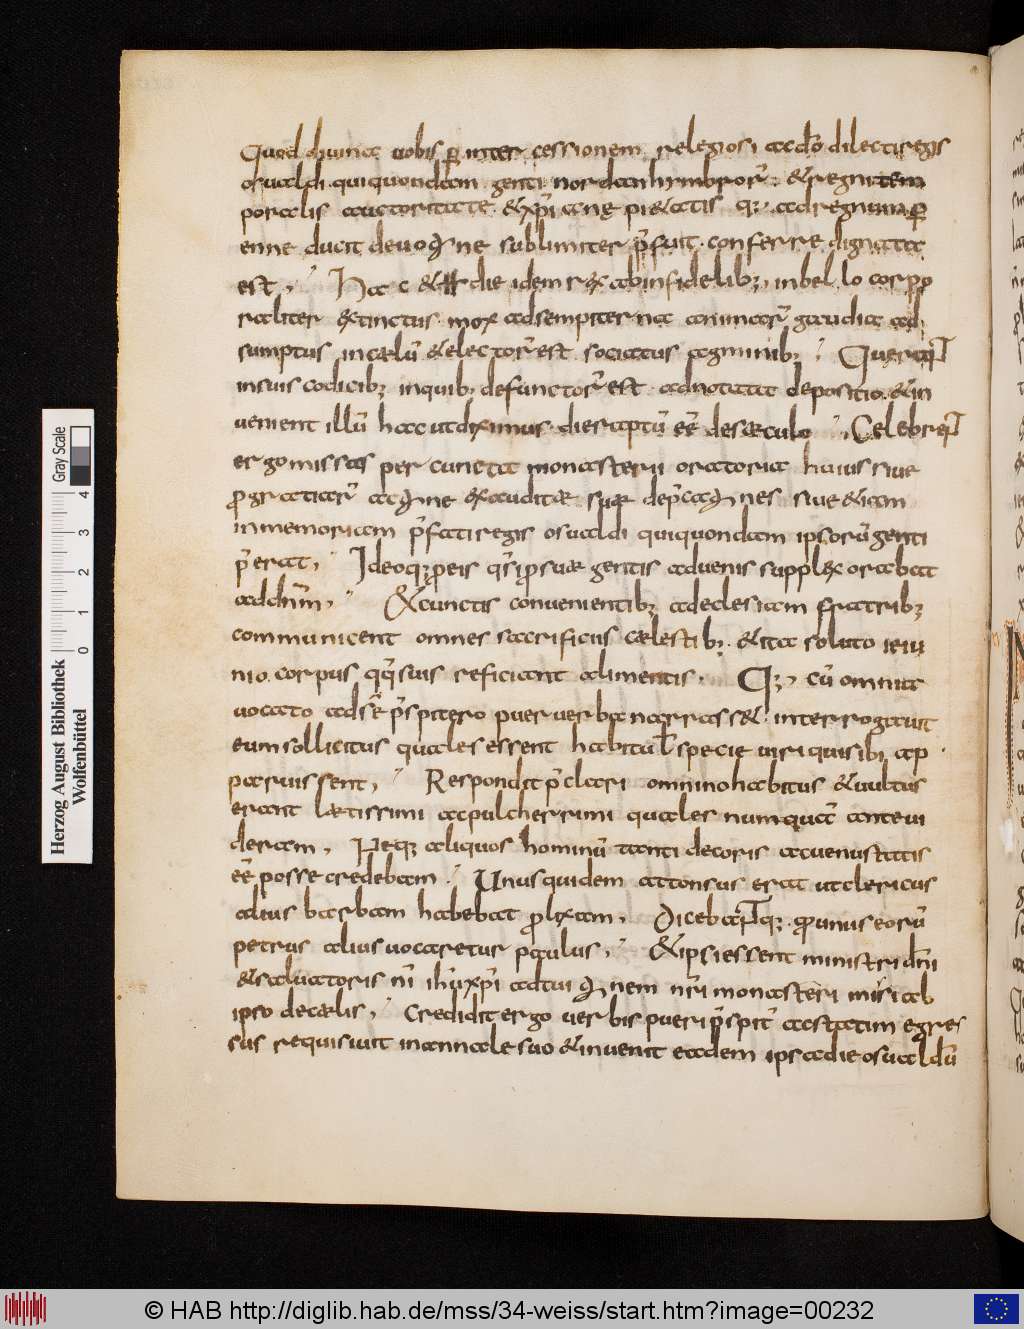 Quod diuina uobis p̄ inter cessionem relegiosi ac dō dilecti regis
osualdi qui quondam genti nordanhymbror̄ · & regni tem
poralis auctoritate · & xp̄iane pi&atis q; · ad regnum p̄
enne ducit deuotione sublimiter p̄fuit · conferre dignata
est , Hac & die idem rex ab infidelib; , in bello corpo
raliter extinctus · mox ad sempiterna animar̄ gaudia ad
sumptus in cælū & elector̄ est sociatus agminib; Querant
in suis codicib; inquib; defunctor̄ est adnotata depositio · & in
uenient illū hac ut diximus die raptū eē de sæculo , Celebrent
ergo missas per cuncta monasterii oratoria huius siue
p̄ gratiar̄ actione exauditæ suæ dep̄cationes siue & iam
in memoriam p̄fati regis osualdi qui quondam ipsorū genti
p̄erat , Ideoq; p eis q̄si p suæ gentis aduenis supplex orabat
ad dn̄m , & cunctis conuenientib; ad eclesiam fratrib;
communicent omnes sacrificiis cælestib; · & ita soluto ieiu
nio · corpus qq̄ suis reficiant alimentis , Q; , cū omnia
uocato ad sē p̄spitero puer uerba narrass& · interrogauit
eum sollicitus quales essent habitu ł specie uiri qui sibi ap
paruissent , Respondit p̄clari omnino habitus & uultus
erant lætissimi ac pulcherrimi quales numquā ante ui
deram , Neq; aliquos hominū tanti decoris ac uenustatis
eē posse credebam Unus quidem attonsus erat ut clericus
alius barbam habebat plixam , Dicebantq; · qp unus eorū
petrus alius uocaretur paulus , & ipsi essent ministri dn̄i
& saluatoris nī ih̄u xp̄i ad tuitionem nr̄i monasteri missi ab
ipso de cælis , Credidit ergo uerbis pueri p̄spit̄ ac statim egres
sus requisiuit in annale suo & inuenit eadem ipsa die osualdū
Herzog August Bibliothek
Wolfenbüttel
Gray Scale
0 1 2 3 4
© HAB http://diglib.hab.de/mss/34-weiss/start.htm?image=00232